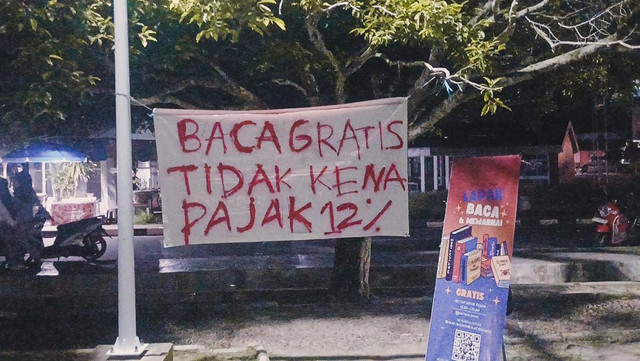 BACA GRATIS
TIDAK KENA
PAJAK 12%
LAPAK
BACA
& MEWARNAI
GRATIS